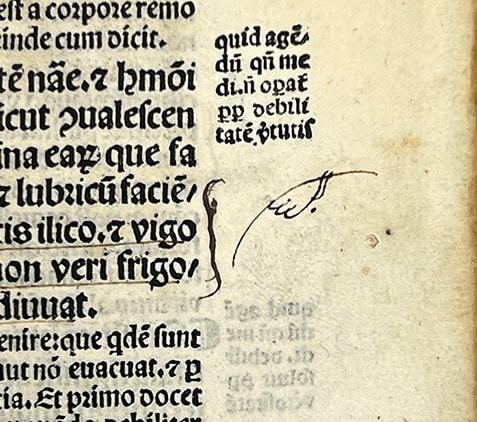 est a corpore remo
einde cum dicit.
tē nāe.⁊ hmōi
icut ꝯualescen
ina eaꝝ que fa
⁊ lubricū faciē/
tis ilico.⁊ vigo
non veri frigo/
diuuāt.
enire:que qdē sunt
aut nō euacuat.⁊ ꝑ
cia. Et primo docet
quid agē/
dū qn̄ me
di.n̄ oꝑat̄
ꝓꝑ debili
tatē v̄tutis